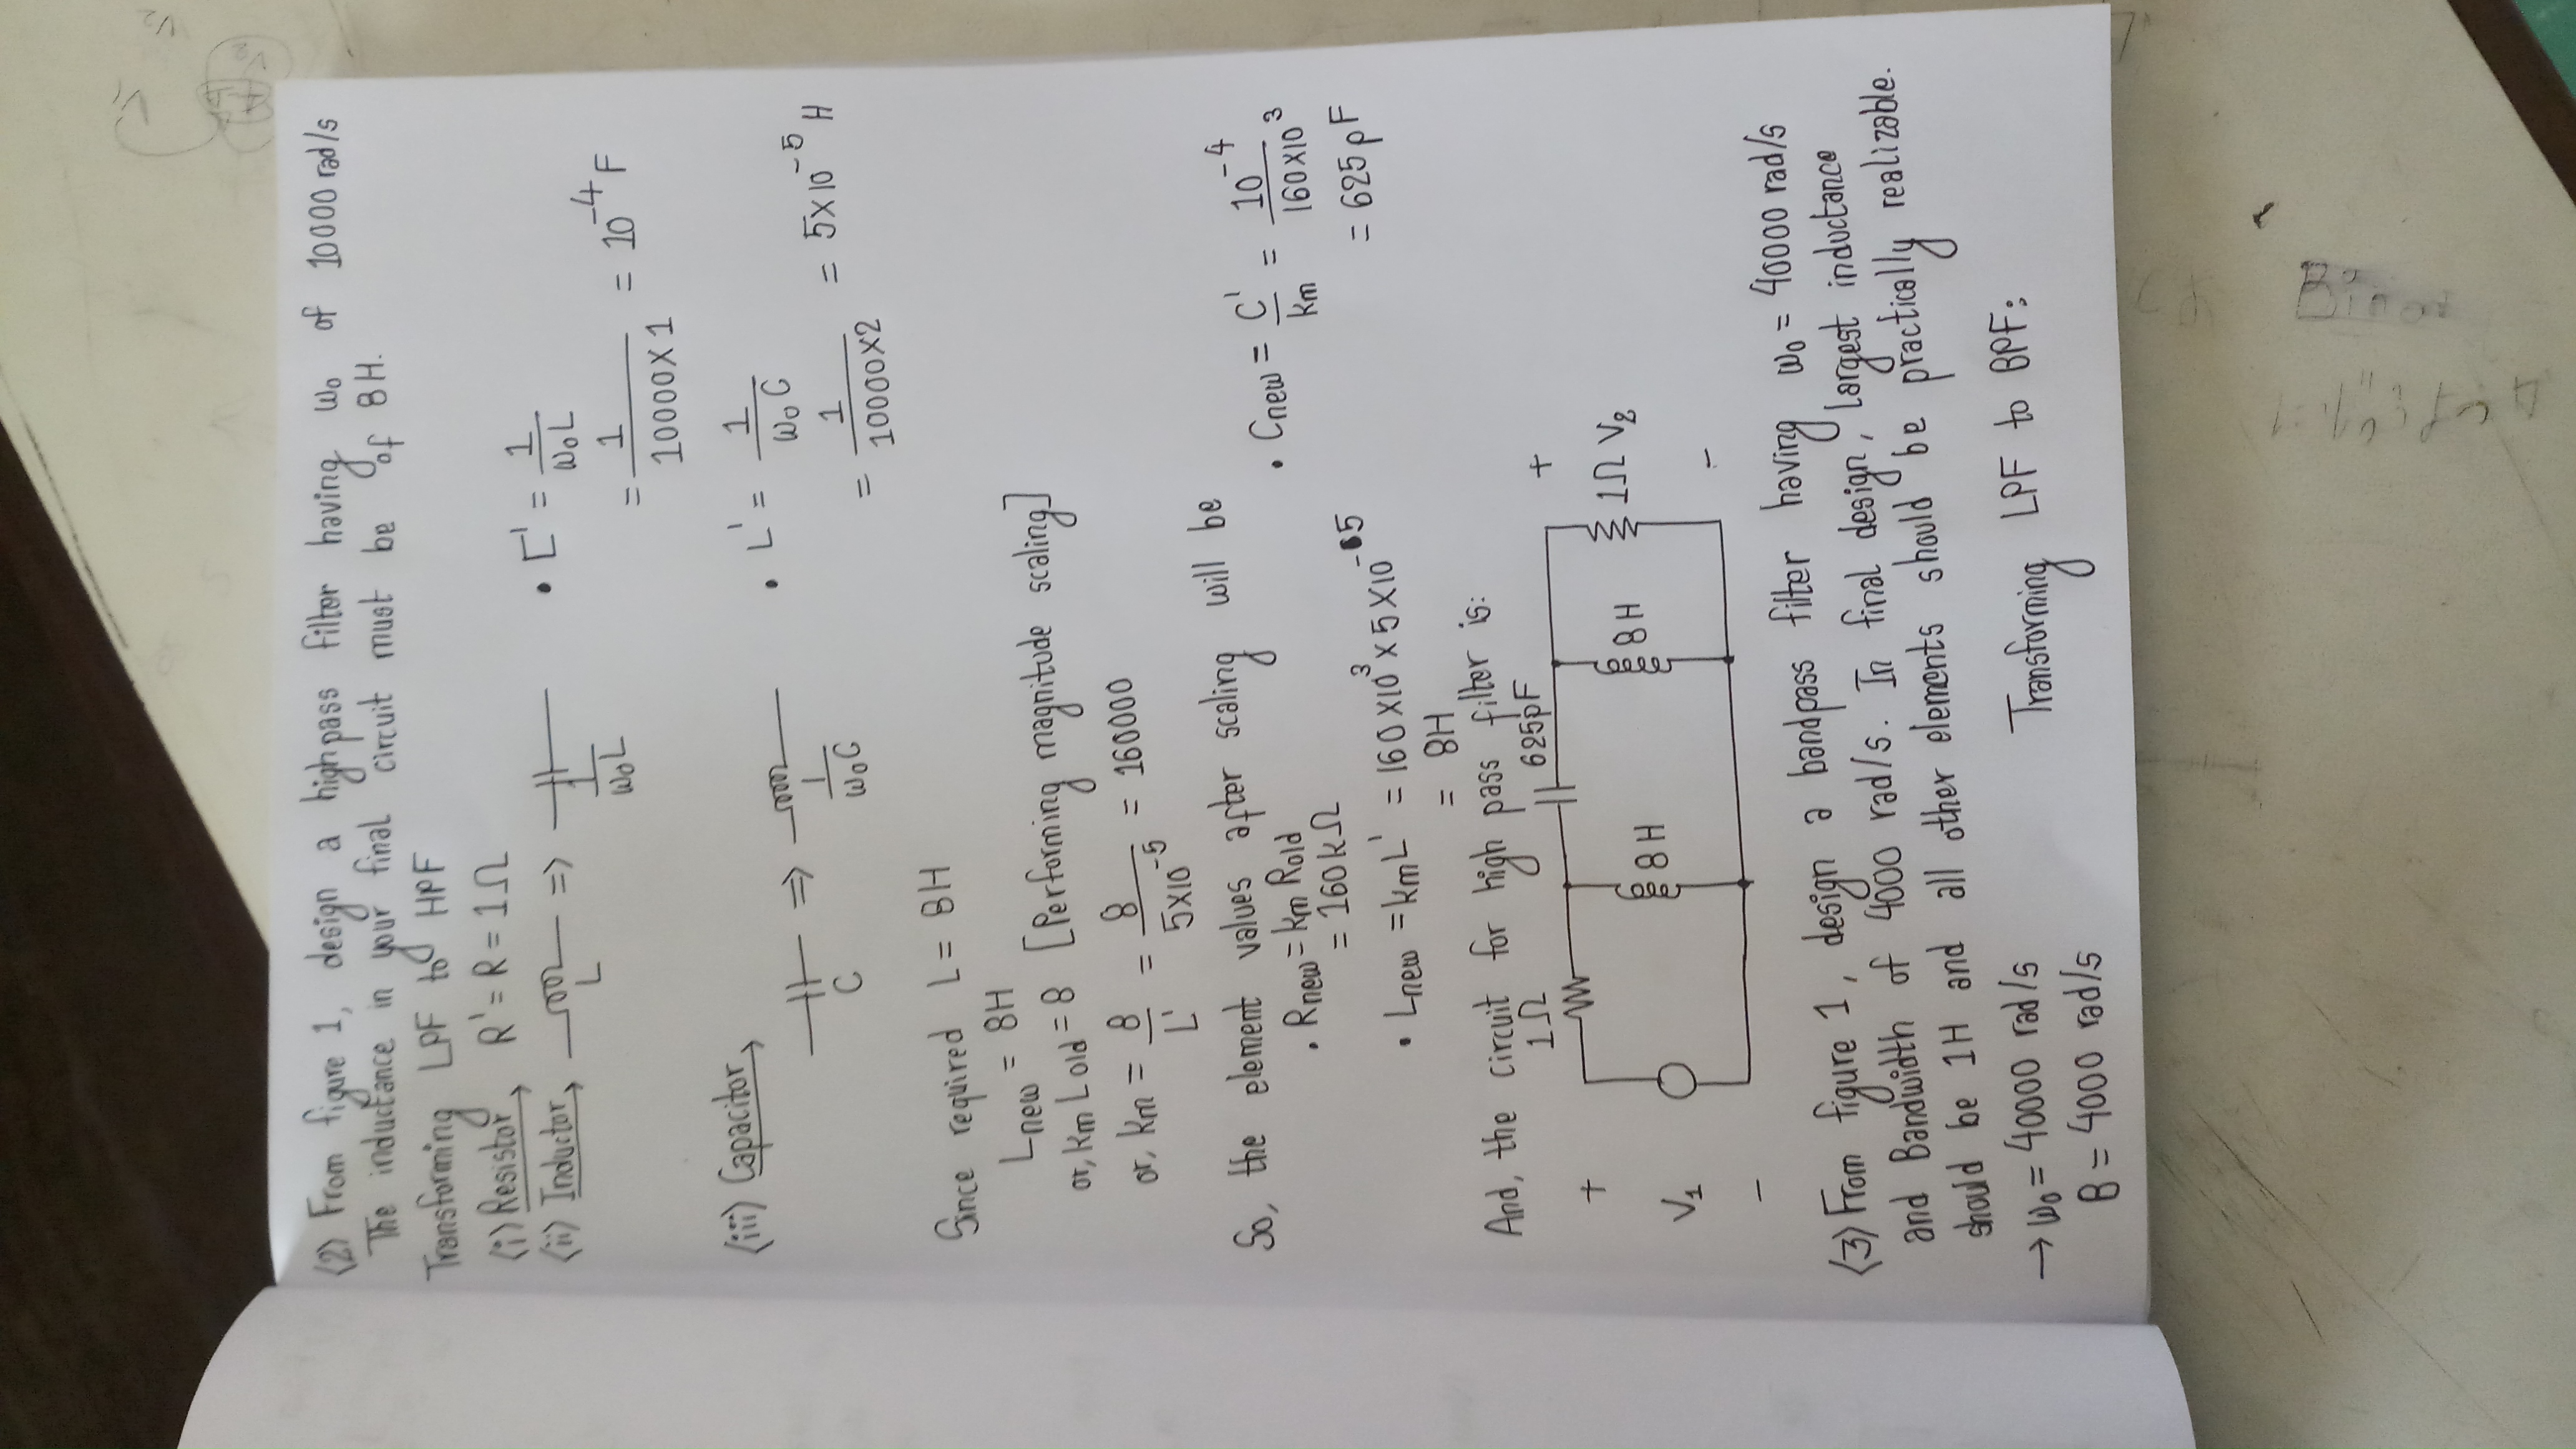 (2) From figure 1, design a highpass filter having ω₀ of 10000 rad/s
The inductance in your final circuit must be of 8H.
Transforming LPF to HPF
(i) Resistor, R' = R = 1Ω
(ii) Inductor, L => 1/ω₀L • C' = 1/ω₀L
= 1/10000×1 = 10⁻⁴ F
(iii) Capacitor,
C => 1/ω₀C • L' = 1/ω₀C
= 1/10000×2 = 5×10⁻⁵ H
Since required L = 8H
Lnew = 8H
or, km Lold = 8 [Performing magnitude scaling]
or, km = 8/L' = 8/5×10⁻⁵ = 160000
So, the element values after scaling will be
• Rnew = km Rold
= 160kΩ
• Cnew = C'/km = 10⁻⁴/160×10³
= 625pF
• Lnew = kmL' = 160×10³×5×10⁻⁵
= 8H
And, the circuit for high pass filter is:
1Ω 625pF
+ +
V₁ 8H 8H 1Ω V₂
- -
(3) From figure 1, design a bandpass filter having ω₀ = 40000 rad/s
and Bandwidth of 4000 rad/s. In final design, largest inductance
should be 1H and all other elements should be practically realizable.
→ ω₀ = 40000 rad/s Transforming LPF to BPF:
B = 4000 rad/s
V₁
V₂